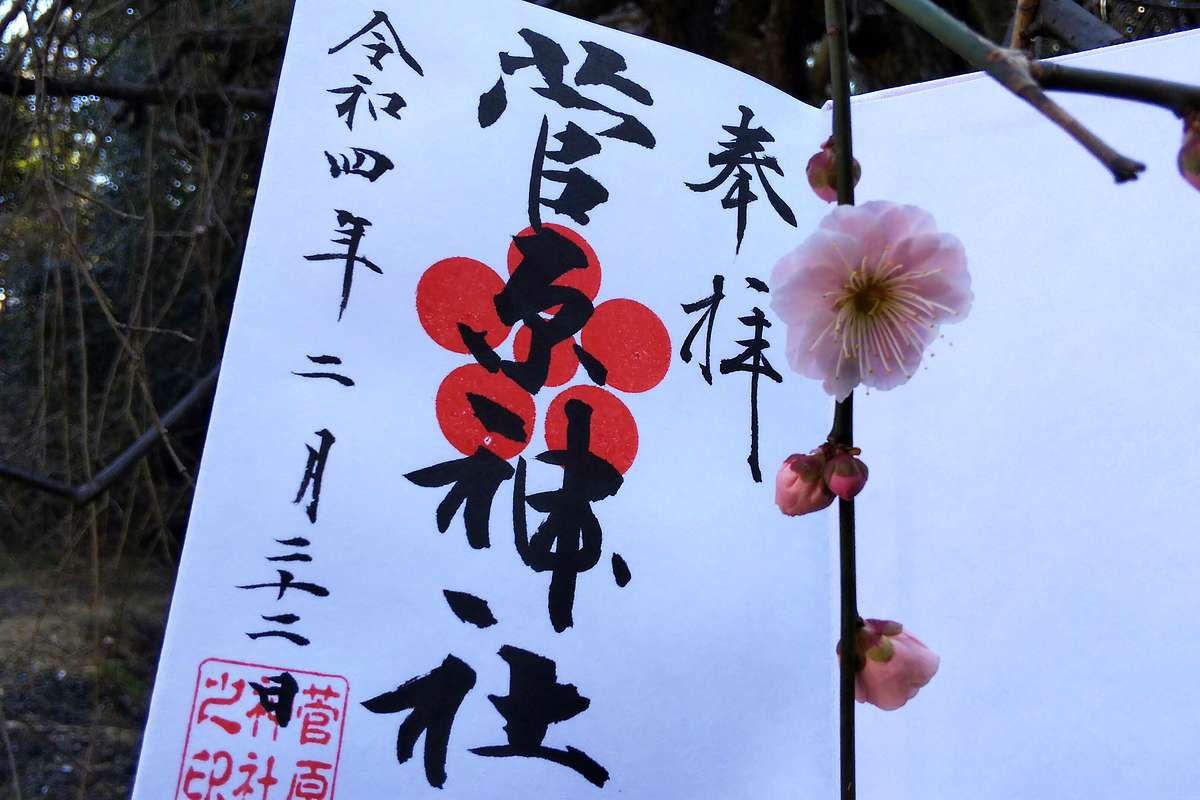 奉拝
菅原神社
令和四年二月二十二日
菅原
神社
之印